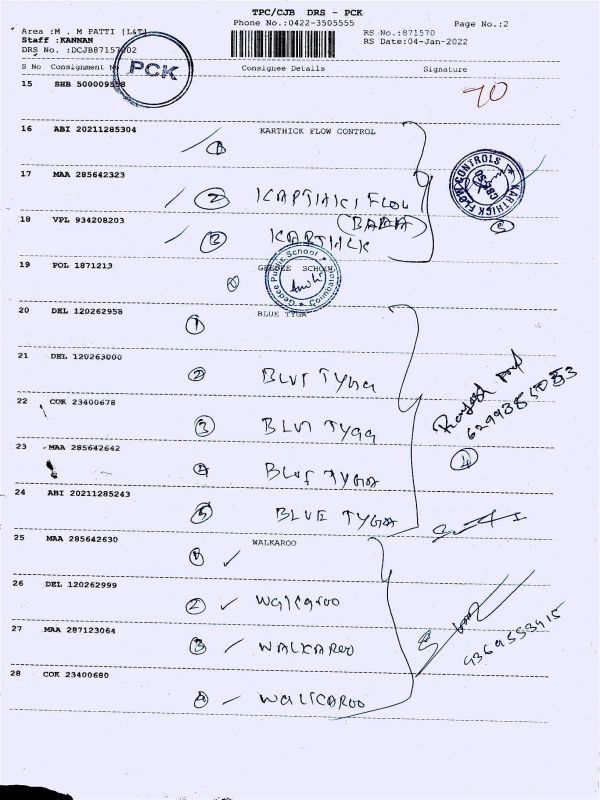 TPC/CJB DRS - PCK
Phone No.:0422-3505555 Page No.:2
Area :M . M PATTI [L&T]
Staff :KANNAN
DRS No. :DCJB87157002
RS No.:871570
RS Date:04-Jan-2022
PCK
S No Consignment No Consignee Details Signature
15 SHB 500009558
70
16 ABI 20211285304 KARTHICK FLOW CONTROL
1
17 MAA 285642323
2 KARTHICK FLOW
(BABA)
KARTHICK FLOW CONTROLS
CBE-50
18 VPL 934208203
3 KARTHICK
19 POL 1871213 GEDEE SCHOOL
1
Gedee Public School
Coimbatore
20 DEL 120262958 BLUE TYGA
1
21 DEL 120263000
2 BLUE TYGA
22 COK 23400678
3 BLUE TYGA
23 MAA 285642642
4 BLUE TYGA
24 ABI 20211285243
5 BLUE TYGA
25 MAA 285642630 WALKAROO
1 ✓
26 DEL 120262999
2 ✓ Walkaroo
27 MAA 287123064
3 ✓ WALKAROO
9369553915
28 COK 23400680
4 ✓ WALKAROO